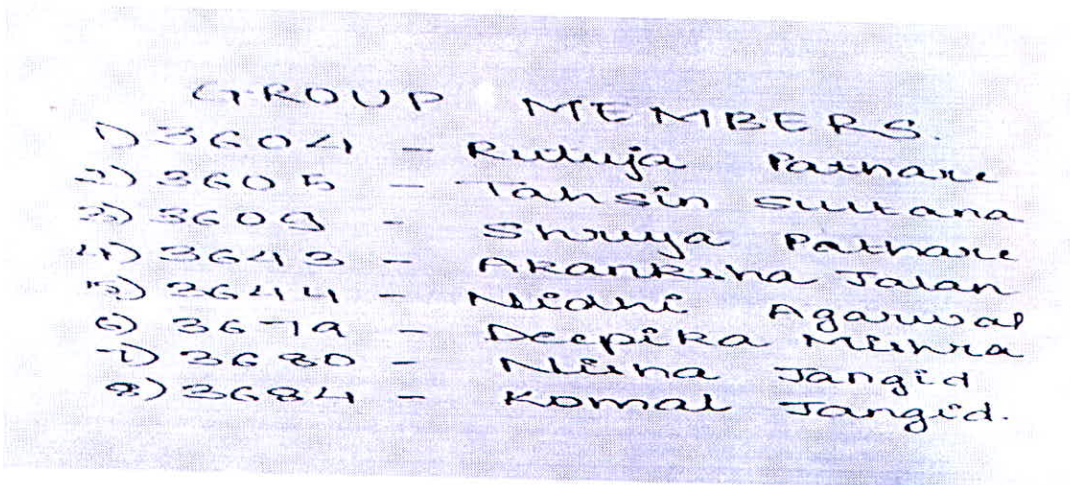 GROUP MEMBERS.
1) 3604 - Rutuja Pathare
2) 3605 - Tahsin Sultana
3) 3609 - Shruya Pathare
4) 3643 - Akanksha Jalan
5) 3644 - Nidhi Agarwal
6) 3679 - Deepika Mishra
7) 3680 - Nisha Jangid
8) 3684 - Komal Jangid.